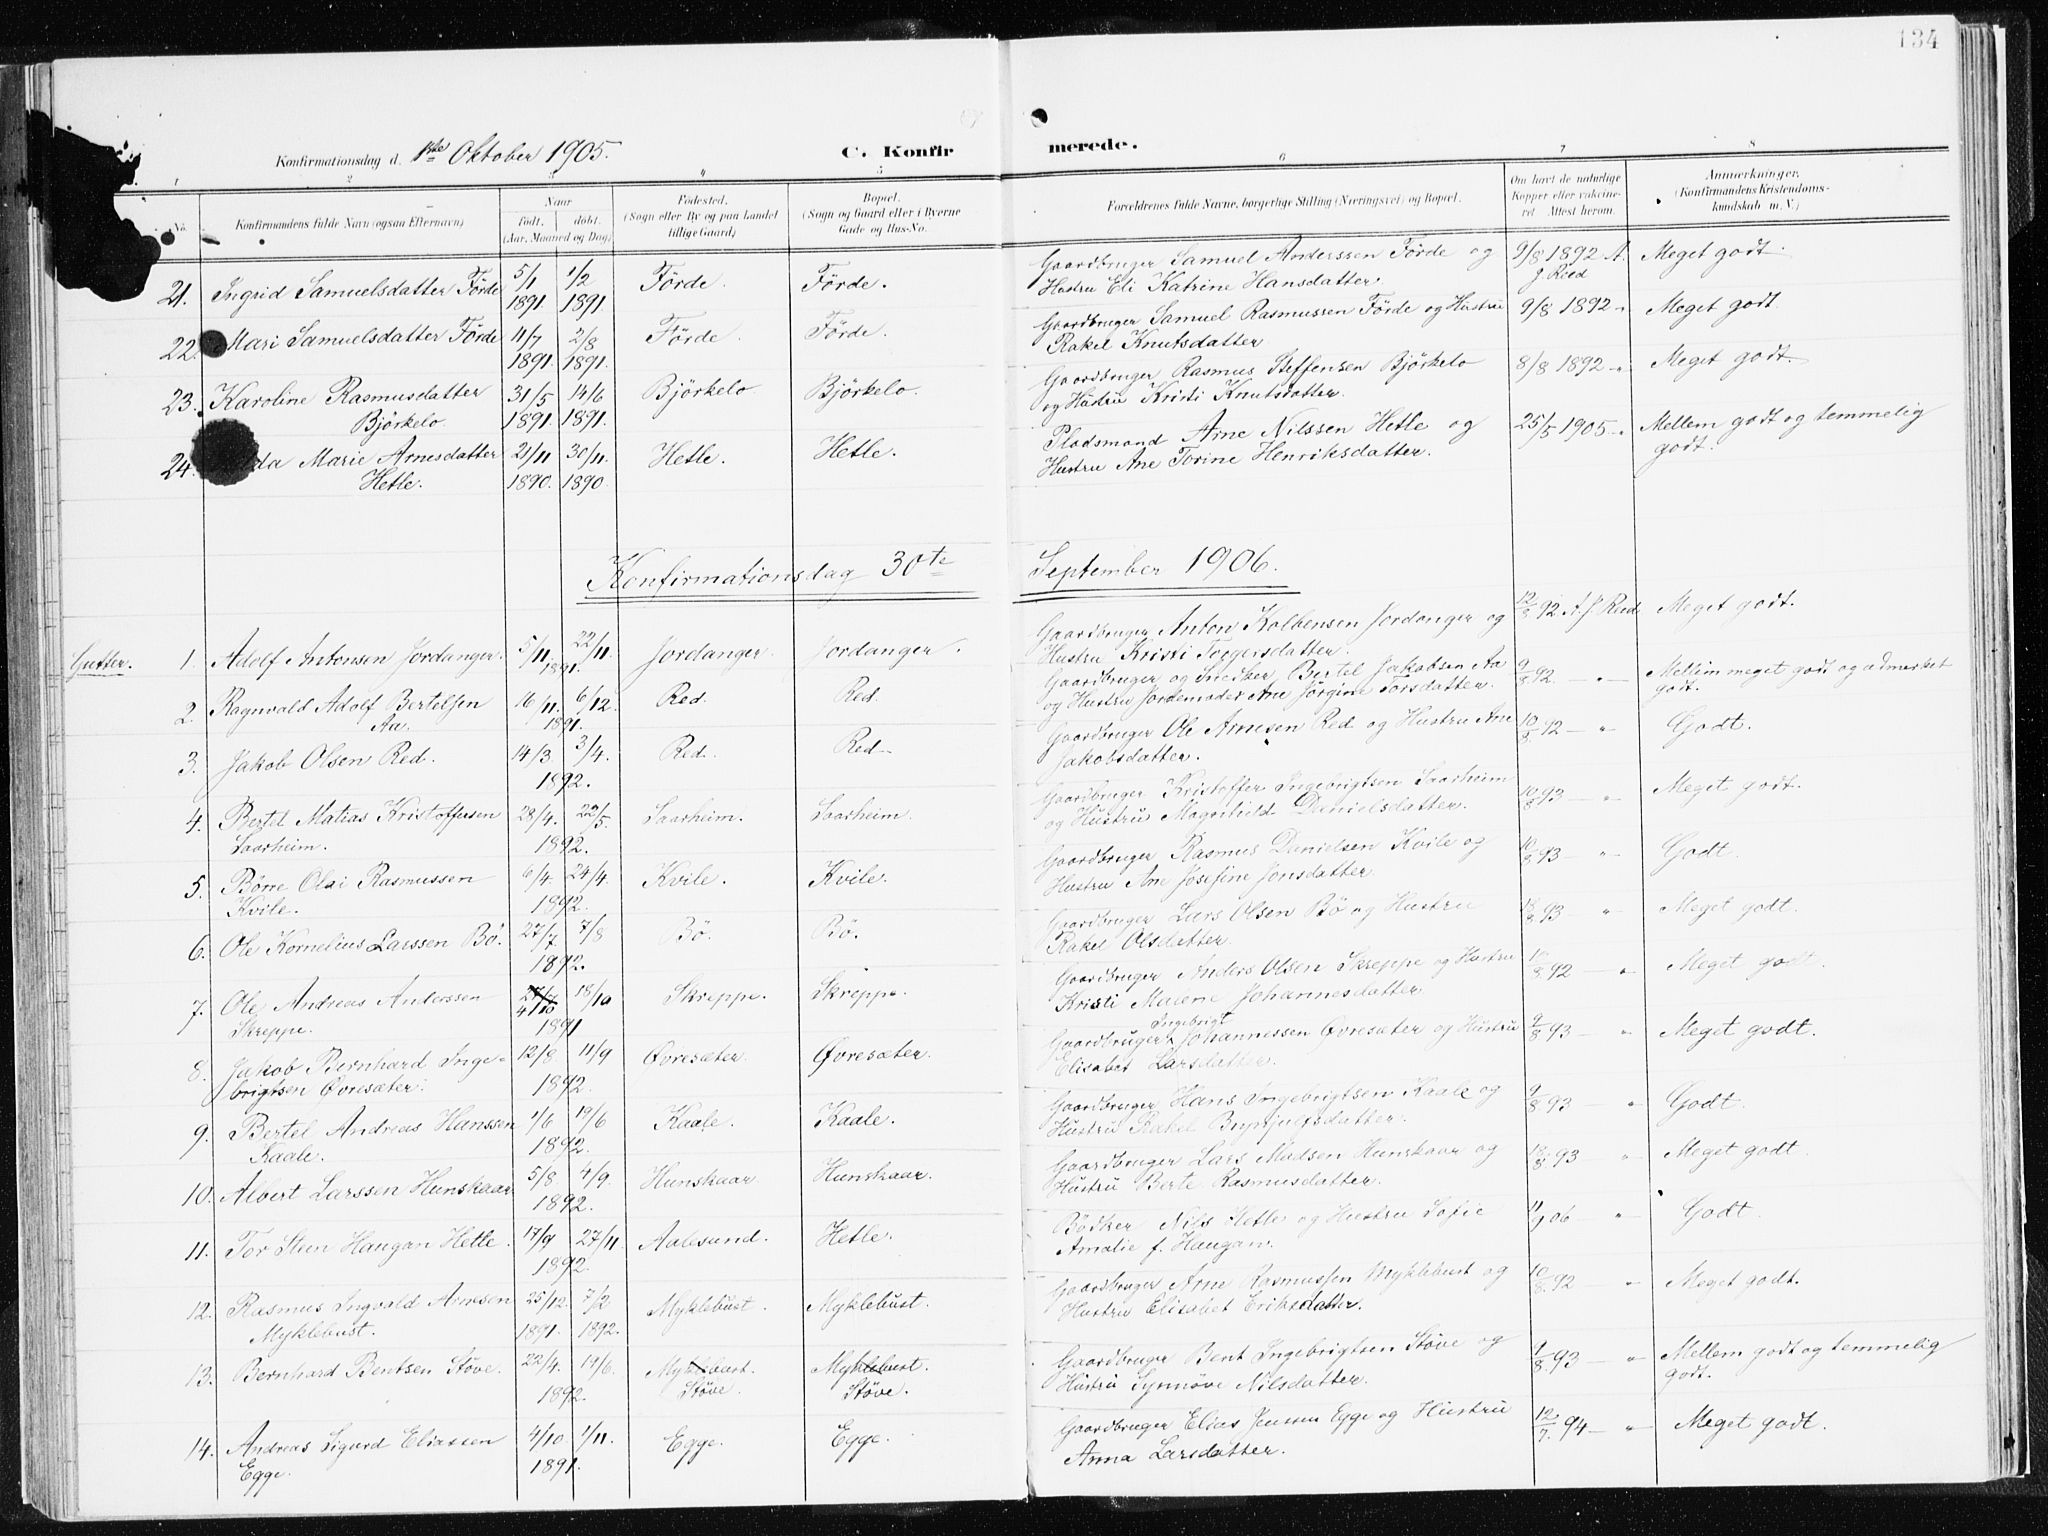 134
Konfirmationsdag d. 1ste Oktober 1905. C. Konfirmerede.
1 2 3 4 5 6 7 8
No. Konfirmandens fulde Navn (ogsaa Efternavn) Naar født. døbt. (Aar, Maaned og Dag) Fødested. (Sogn eller By og paa Landet tillige Gaard) Bopæl. (Sogn og Gaard eller i Byerne Gade og Hus-No. Forældrenes fulde Navne, borgerlige Stilling (Næringsvei) og Bopæl. Om havt de naturlige Kopper eller vakcineret. Attest herom. Anmærkninger. (Konfirmandens Kristendomskundskab m. V.)
21. Ingrid Samuelsdatter Förde 5/1 1891. 1/2 1891. Förde. Förde. Gaardbruger Samuel Anderssen Förde og Hustru Eli Katrine Hansdatter. 9/8 1892 A. J. Ried Meget godt.
22. Mari Samuelsdatter Förde 11/7 1891. 2/8 1891. Förde. Förde. Gaardbruger Samuel Rasmussen Förde og Hustru Rakel Knutsdatter 9/8 1892 " Meget godt
23. Karoline Rasmusdatter Björkelo 31/5 1891. 14/6 1891. Björkelo Björkelo. Gaardbruger Rasmus Steffensen Björkelo og Hustru Kristi Knutsdatter. 8/8 1892 " Meget godt.
24. Marie Arnesdatter Hetle. 21/11 1890. 30/11. 1890. Hetle. Hetle. Pladsmand Arne Nilssen Hetle og Hustru Ane Torine Henriksdatter. 25/5 1905 " Mellem godt og temmelig godt.
Konfirmationsdag 30te September 1906.
Gutter. 1. Adolf Antonsen Jordanger. 5/11 22/11. 1891. Jordanger. Jordanger. Gaardbruger Anton Kolbensen Jordanger og Hustru Kristi Torgersdatter. 12/8 92 A. J. Ried Meget godt.
2. Ragnvald Adolf Bertelsen Aa. 16/11. 6/12. 1891. Red. Red. Gaardbruger og Snedker Bertel Jakobsen Aa og Hustru Jordemoder Ane Jörgine Torsdatter. 9/8 92 — " Mellem meget godt og udmerket godt.
3. Jakob Olsen Red. 14/3 3/4. 1892. Red. Red. Gaardbruger Ole Arnesen Red og Hustru Ane Jakobsdatter. 10/8 92 — " Godt.
4. Bertel Matias Kristoffersen Saarheim. 28/4. 22/5. 1892. Saarheim. Saarheim. Gaardbruger Kristoffer Ingebrigtsen Saarheim og Hustru Magnhild Danielsdatter. 10/8 93 — " Meget godt.
5. Börre Olai Rasmussen Kvile. 6/4. 24/4. 1892. Kvile. Kvile. Gaardbruger Rasmus Danielsen Kvile og Hustru Ane Josefine Jonsdatter. 10/8 93 — " Godt.
6. Ole Kornelius Larssen Bö. 27/7 7/8 1892. Bö. Bö. Gaardbruger Lars Olsen Bö og Hustru Rakel Olsdatter. 93 — " Meget godt.
7. Ole Andreas Anderssen Skreppe. 27/7 4/10 18/10 1891 Skreppe. Skreppe. Gaardbruger Anders Olsen Skreppe og Hustru Kristi Malene Johannesdatter 92 — " Meget godt.
8. Jakob Bernhard Ingebrigtsen Øvresæter. 12/8 11/9 1892. Øvresæter. Øvresæter. Gaardbruger Ingebrigt Johannessen Øvresæter og Hustru Elisabet Larsdatter. 9/8 93 " Meget godt.
9. Bertel Andreas Hanssen Kaale. 1/6 19/6 1892. Kaale. Kaale. Gaardbruger Hans Ingebrigtsen Kaale og Hustru Rakel 9/8 93 " Godt.
10. Albert Larssen Hunskaar 5/8 4/9. 1892. Hunskaar Hunskaar. Gaardbruger Lars Madsen Hunskaar og Hustru Berte Rasmusdatter. 93 " Meget godt.
11. Tor Steen Haugan Hetle. 17/9 27/11 1892. Aalesund. Hetle. Bödker Nils Hetle og Hustru Sofie Amalie f. Haugan. 11/9 06 " Godt
12. Rasmus Ingvald Arnesen Myklebust. 25/12. 1891. 7/2 1892. Myklebust. Myklebust. Gaardbruger Arne Rasmussen Myklebust og Hustru Elisabet Eriksdatter. 10/8. 92 — " Meget godt.
13. Bernhard Bentsen Støve. 22/4. 19/6. 1892. Myklebust. Støve. Myklebust. Støve. Gaardbruger Bent Ingebrigtsen Støve og Hustru Synnöve Nilsdatter. 1/8 93 " Mellem godt og temmelig godt.
14. Andreas Sigurd Eliassen Egge. 4/10 1/11. 1891. Egge. Egge. Gaardbruger Elias Jensen Egge og Hustru Anna Larsdatter. 12/7. 94 — " Meget godt.